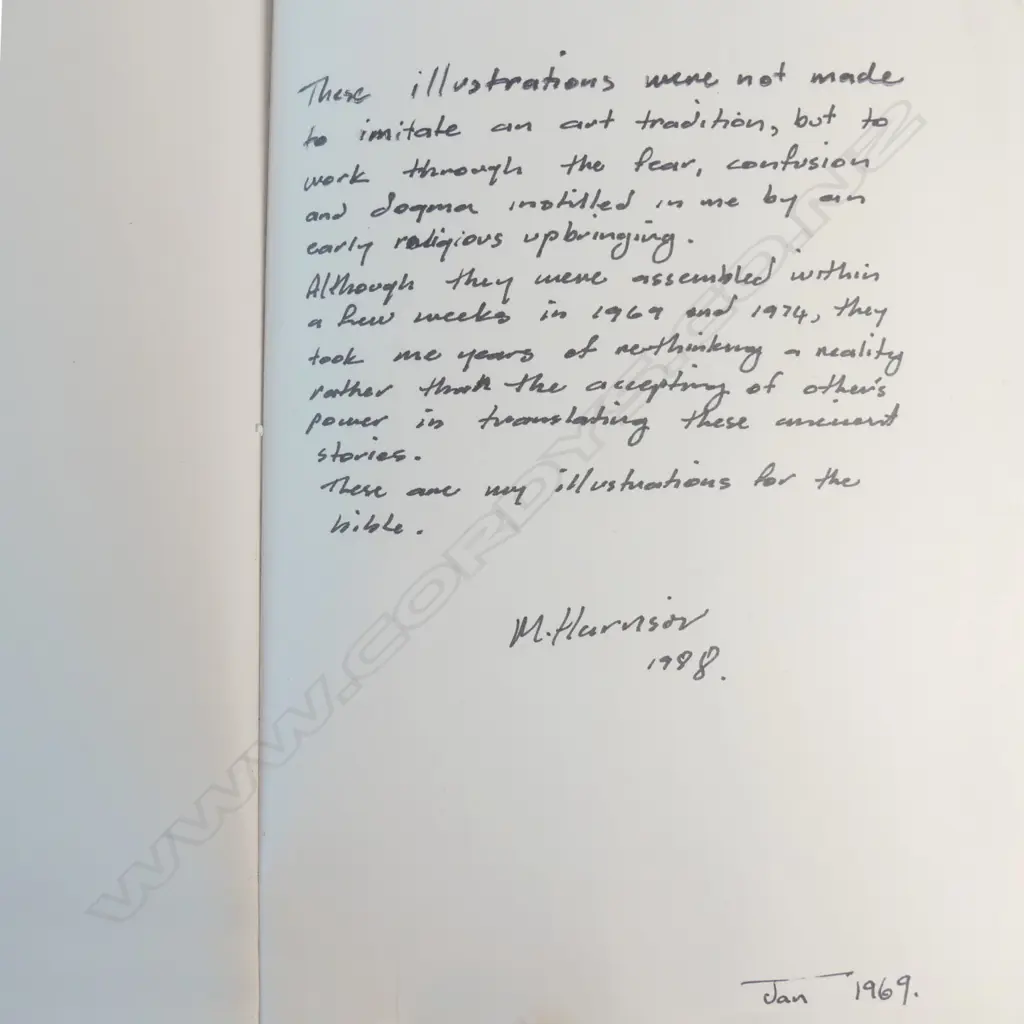 These illustrations were not made
to imitate an art tradition, but to
work through the fear, confusion
and dogma instilled in me by an
early religious upbringing.
Although they were assembled within
a few weeks in 1969 and 1974, they
took me years of re-thinking a reality
rather than the accepting of other's
power in translating these ancient
stories.
These are my illustrations for the
bible.
M. Harrison
1988.
Jan 1969.
WWW.CORDYS.CO.NZ